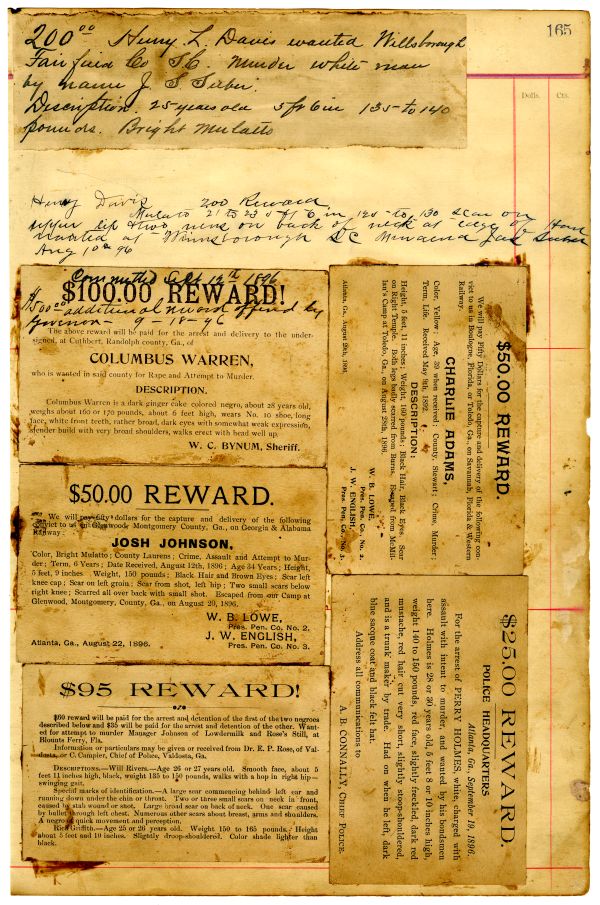 165
Dolls. Cts.
200.00 Henry L Davis wanted Willsborough
Fairfield Co S.C. Murder white man
by name J. S. Seeber.
Description. 25 years old 5 ft 6 in 135 to 140
pounds. Bright Mulatto
Henry Davis 200 Reward
Mulato 21 to 23 5 ft 6 in 125 to 130 scar on
upper lip & two on back of neck at edge of
wanted at Winnsborough S C
Aug 1st 96
Committed Sept 12th 1896
$100.00 REWARD!
$500 additional reward offered by
Governor 9-15-96
The above reward will be paid for the arrest and delivery to the under-
signed, at Cuthbert, Randolph county, Ga., of
COLUMBUS WARREN,
who is wanted in said county for Rape and Attempt to Murder.
DESCRIPTION.
Columbus Warren is a dark ginger cake colored negro, about 28 years old,
weighs about 160 or 170 pounds, about 6 feet high, wears No. 10 shoe, long
face, white front teeth, rather broad, dark eyes with somewhat weak expression,
slender build with very broad shoulders, walks erect with head well up.
W. C. BYNUM, Sheriff.
$50.00 REWARD.
We will pay fifty dollars for the capture and delivery of the following
convict to us at Glenwood Montgomery County, Ga., on Georgia & Alabama
Railway:
JOSH JOHNSON,
Color, Bright Mulatto; County Laurens; Crime, Assault and Attempt to Mur-
der; Term, 6 Years; Date Received, August 12th, 1896; Age 34 Years; Height
5 feet, 9 inches Weight, 150 pounds; Black Hair and Brown Eyes; Scar left
knee cap; Scar on left groin; Scar from shot, left hip; Two small scars below
right knee; Scarred all over back with small shot. Escaped from our Camp at
Glenwood, Montgomery, County, Ga., on August 20, 1896.
W. B. LOWE,
Pres. Pen. Co. No. 2.
J. W. ENGLISH,
Pres. Pen. Co. No. 3.
Atlanta, Ga., August 22, 1896.
$95 REWARD!
$60 reward will be paid for the arrest and detention of the first of the two negroes
described below and $35 will be paid for the arrest and detention of the other. Want-
ed for attempt to murder Manager Johnson of Lowdermilk and Rose's Still, at
Blounts Ferry, Fla.
Information or particulars may be given or received from Dr. E. P. Rose, of Val-
dosta, or C. Campier, Chief of Police, Valdosta, Ga.
DESCRIPTIONS.—Will Rivers.—Age 26 or 27 years old. Smooth face, about 5
feet 11 inches high, black, weight 135 to 150 pounds, walks with a hop in right hip—
swinging gait.
Special marks of identification.—A large scar commencing behind left ear and
running down under the chin or throat. Two or three small scars on neck in front,
caused by stab wound or shot. Large broad scar on back of neck. One scar caused
by bullet through left chest. Numerous other scars about breast, arms and shoulders.
A negro of quick movement and perception.
Rich Griffith.—Age 25 or 26 years old. Weight 150 to 165 pounds. Height
about 5 feet and 10 inches. Slightly droop-shouldered. Color shade lighter than
black.
$50.00 REWARD.
We will pay Fifty Dollars for the capture and delivery of the following con-
vict to us in Boulogne, Florida, or Toledo, Ga., on Savannah, Florida & Western
Railway.
CHARLIE ADAMS,
Color, Yellow; Age, 39 when received; County, Stewart; Crime, Murder;
Term, Life. Received May 9th, 1892.
DESCRIPTION:
Height, 5 feet, 11 inches; Weight, 169 pounds; Black Hair, Black Eyes. Scar
on Right Temple. Both legs badly scarred from Burns. Escaped from McMil-
lan's Camp at Toledo, Ga., on August 28th, 1896.
W. B. LOWE,
Pres. Pen. Co., No. 2.
J. W. ENGLISH,
Pres. Pen. Co., No. 3.
Atlanta, Ga., August 29th, 1896.
$25.00 REWARD.
POLICE HEADQUARTERS
Atlanta, Ga., September 19, 1896.
For the arrest of PERRY HOLMES, white, charged with
assault with intent to murder, and wanted by his bondsmen
here. Holmes is 28 or 30 years old, 5 feet 8 or 10 inches high,
weight 140 to 150 pounds, red face, slightly freckled, dark red
mustache, red hair cut very short, slightly stoop-shouldered,
and is a trunk maker by trade. Had on when he left, dark
blue sacque coat and black felt hat.
Address all communications to
A. B. CONNALLY, CHIEF POLICE.